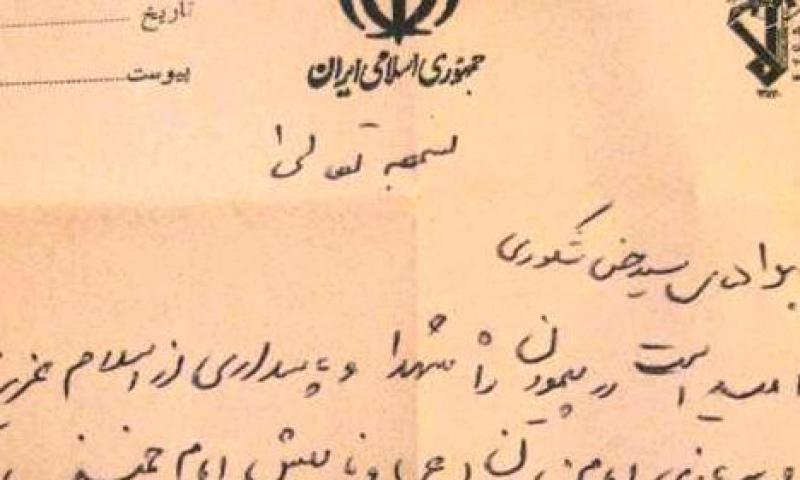 تاریخ
پیوست
جمهوری اسلامی ایران
بسمه تعالی
برادرم سید حسن شکوری
امید است در پیمودن راه شهدا و پاسداری از اسلام عزیز
امام زمان و نائبش امام خمینی